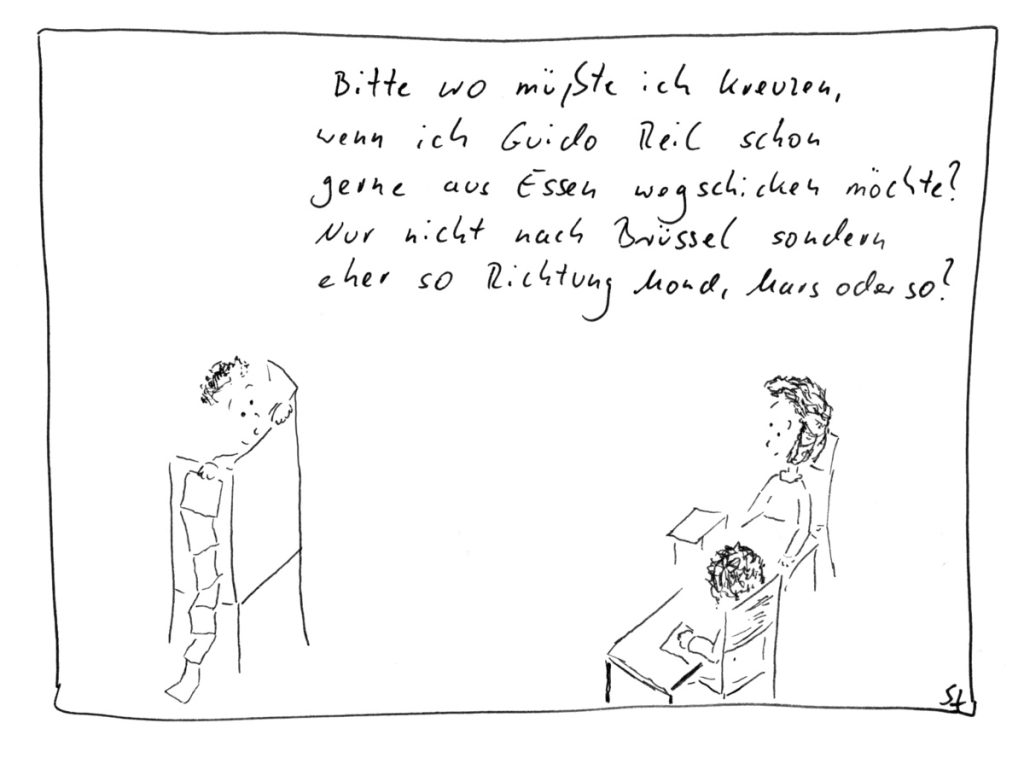 Bitte wo müßte ich kreuzen,
wenn ich Guido Reil schon
gerne aus Essen wegschicken möchte?
Nur nicht nach Brüssel sondern
eher so Richtung Mond, Mars oder so?
St